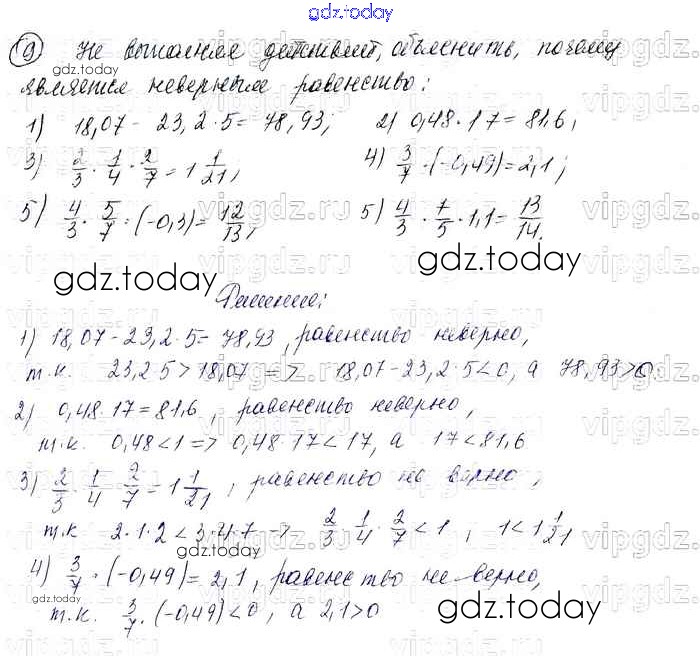 gdz.today
9) Не выполняя действий, объяснить, почему
gdz.today
является неверным равенство:
1) 18,07 - 23,2·5 = 78,93; 2) 0,48·17 = 81,6;
3) 2/3 · 1/4 · 2/7 = 1 1/21; 4) 3/7 · (-0,49) = 2,1;
5) 4/3 · 5/7 · (-0,3) = 12/13; 5) 4/3 · 1/5 · 1,1 = 13/14.
gdz.today gdz.today
Решение:
1) 18,07 - 23,2·5 = 78,93, равенство неверно,
т.к. 23,2·5 > 18,07 => 18,07 - 23,2·5 < 0, а 78,93 > 0.
2) 0,48·17 = 81,6, равенство неверно,
т.к. 0,48 < 1 => 0,48·17 < 17, а 17 < 81,6
3) 2/3 · 1/4 · 2/7 = 1 1/21, равенство не верно,
т.к 2·1·2 < 3·4·7 => 2/3 · 1/4 · 2/7 < 1, 1 < 1 1/21
gdz.today
4) 3/7 · (-0,49) = 2,1, равенство не верно,
т.к. 3/7 · (-0,49) < 0, а 2,1 > 0
gdz.today
vipgdz.ru